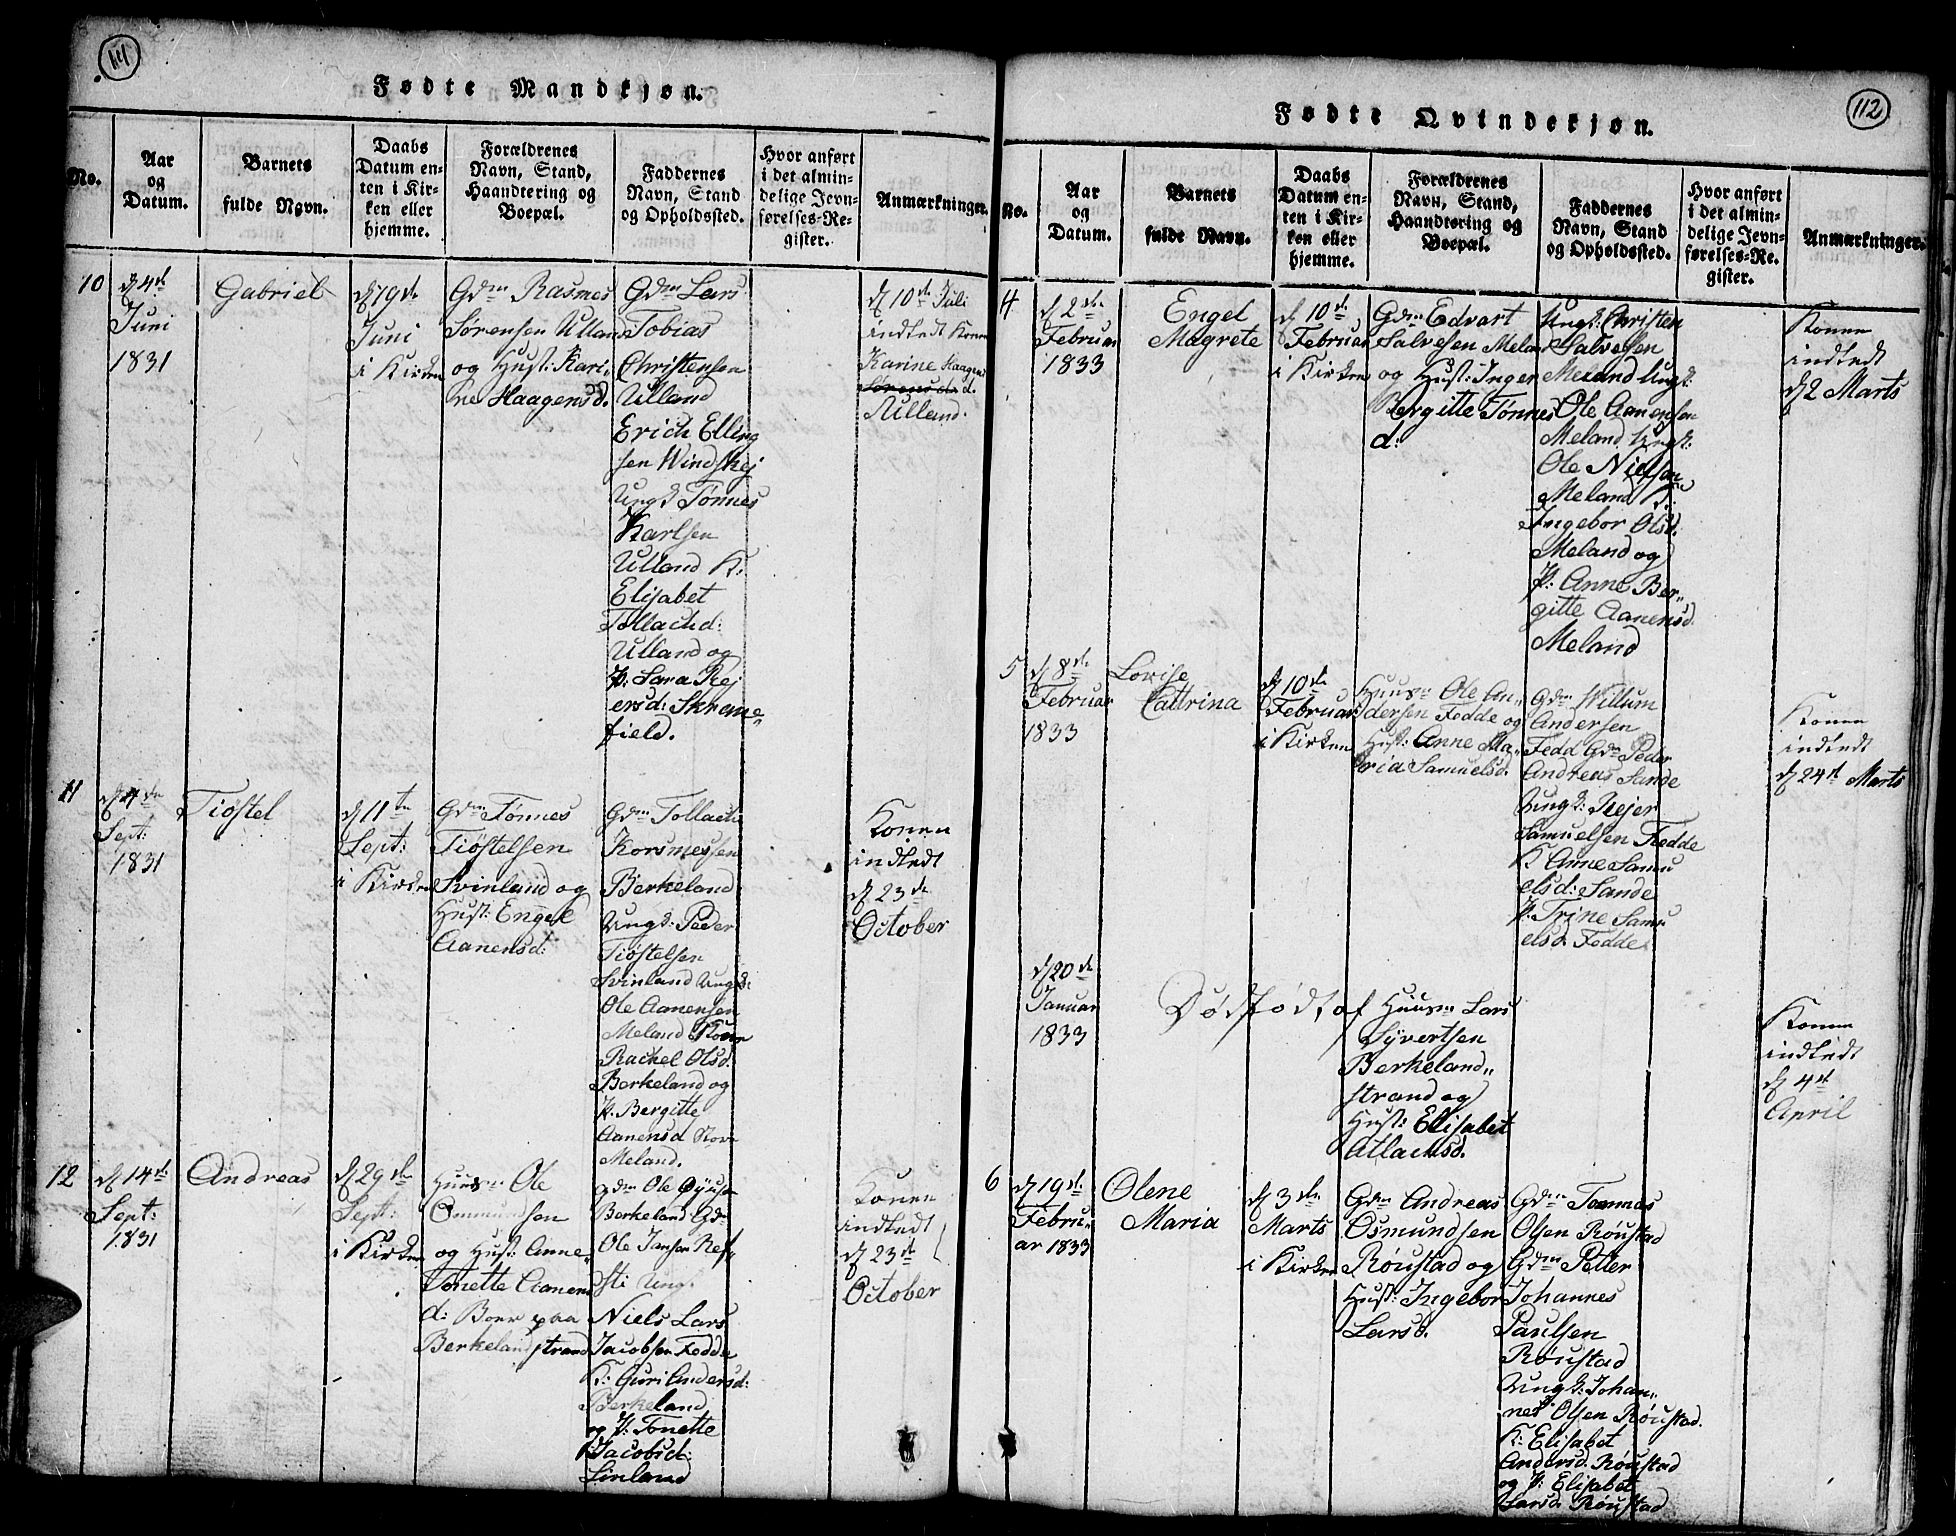 111
Fødte Mandkjøn.
No.
Aar
og
Datum.
Barnets
fulde Navn.
Daabs
Datum en-
ten i Kir-
ken eller
hjemme.
Forældrenes
Navn, Stand,
Haandtering og
Boepæl.
Faddernes
Navn, Stand
og Opholdssted.
Hvor anført
i det almin-
delige Jevn-
førelses-Re-
gister.
Anmærkninger.
10
d 4de
Juni
1831
Gabriel
d 19de
Juni
i Kirken
Gdm Rasmes
Sørensen Ulland
og Hust: Kari-
ne Haagensd.
Gdm Lars
Tobias
Christensen
Ulland
Erich Elling
sen Windskej
Ungk Tønnes
Karlsen
Ulland K:
Elisabet
Tollachd:
Ulland og
P: Sara Rej
ersd: Skreme-
field.
d 10de Juli
indledt Konen
Karine Haagens
d.
Ulland.
11
d 4de
Sept:
1831
Tiøstel
d 11te
Sept:
i Kirken
Gdm Tønnes
Tiøstelsen
Svinland og
Hust: Engel
Aanensd:
Gdm Tollach
Korsmessen
Berkeland
Ungk: Peder
Tiøstelsen
Svinland Ungk:
Ole Aanensen
Meland Kone
Rachel Olsd.
Berkeland og
P. Bergitte
Aanensd
Meland.
Konen
indledt
d 23de
October
12
d 14de
Sept:
1831
Andreas
d 29de
Sept:
i Kirken
Huusm Ole
Ommundsen
og Hust: Anne
Tonette Aanens
d: Boer paa
Berkelandstrand
gdm Ole
Berkeland Gdm
Ole Jansen Ref
sti Ungk
Niels Lars
Jacobsen Fedde
K: Guri Andersd:
Berkeland
og P: Tonette
Jacobsd:
Linland
Konen
indledt
d 23de
October
112
Fødte Qvindekjøn.
No.
Aar
og
Datum.
Barnets
fulde Navn.
Daabs
Datum en-
ten i Kir-
ken eller
hjemme.
Forældrenes
Navn, Stand,
Haandtering og
Boepæl.
Faddernes
Navn, Stand
og Opholdssted.
Hvor anført
i det almin-
delige Jevn-
førelses-Re-
gister.
Anmærkninger.
4
d 2de
Februar
1833
Engel
Magrete
d 10de
Februar
i Kirken
Gdm Edvart
Salvesen Meland
og Hust: Inger
Bergitte Tønnes
d:
Ungk: Christen
Salvesen
Meland Ungk:
Ole Aanensen
Meland Ungk:
Ole Nielsen
Meland K:
Ingebor Olsd.
Meland og
P: Anne Ber-
gitte Aanensd.
Meland
Konen
indledt
d 2 Marts
5
d 8de
Februar
1833
Lovise
Cattrina
d 10de
Februar
i Kirken
Huusm Ole An-
dersen Fedde og
Hust: Anne Ma-
ria Samuelsd.
Gdm Willum
Andersen
Fedd Gdm Peder
Andreas Sande
Ungk: Rejer
Samuelsen Fedde
K Anne Samu
elsd: Sande
P: Trine Samu
elsd. Fedde
Konen
indledt
d 24de Marts
d 20de
Januar
1833
Dødfødt af
Huusm Lars
Syvertsen
Berkeland-
strand og
Hust: Elisabet
Atlachsd.
Konen
indledt
d 4de
April
6
d 19de
Febru-
ar 1833
Olene
Maria
d 3de
Marts
i Kirken
Gdm Andreas
Osmundsen
Røustad og
Hust: Ingebor
Larsd.
Gdm Tønnes
Olsen Røustad
Gdm Petter
Johannes
Paulsen
Røustad
Ungk: Johan-
nes Olsen Røustad.
K: Elisabet
Andersd. Røustad
og P: Elisabet
Larsd. Røustad